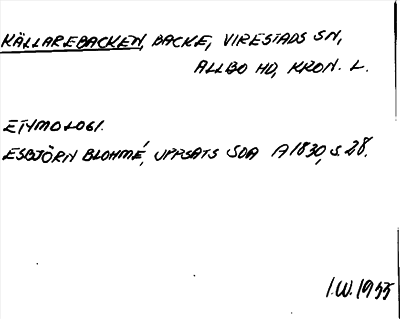 KÄLLAREBACKEN, BACKE, VIRESTADS SN,
ALLBO HD, KRON. L.
ETYMOLOGI.
ESBJÖRN BLOHMÉ, UPPSATS SOA A1830, S 28.
I.W. 1955